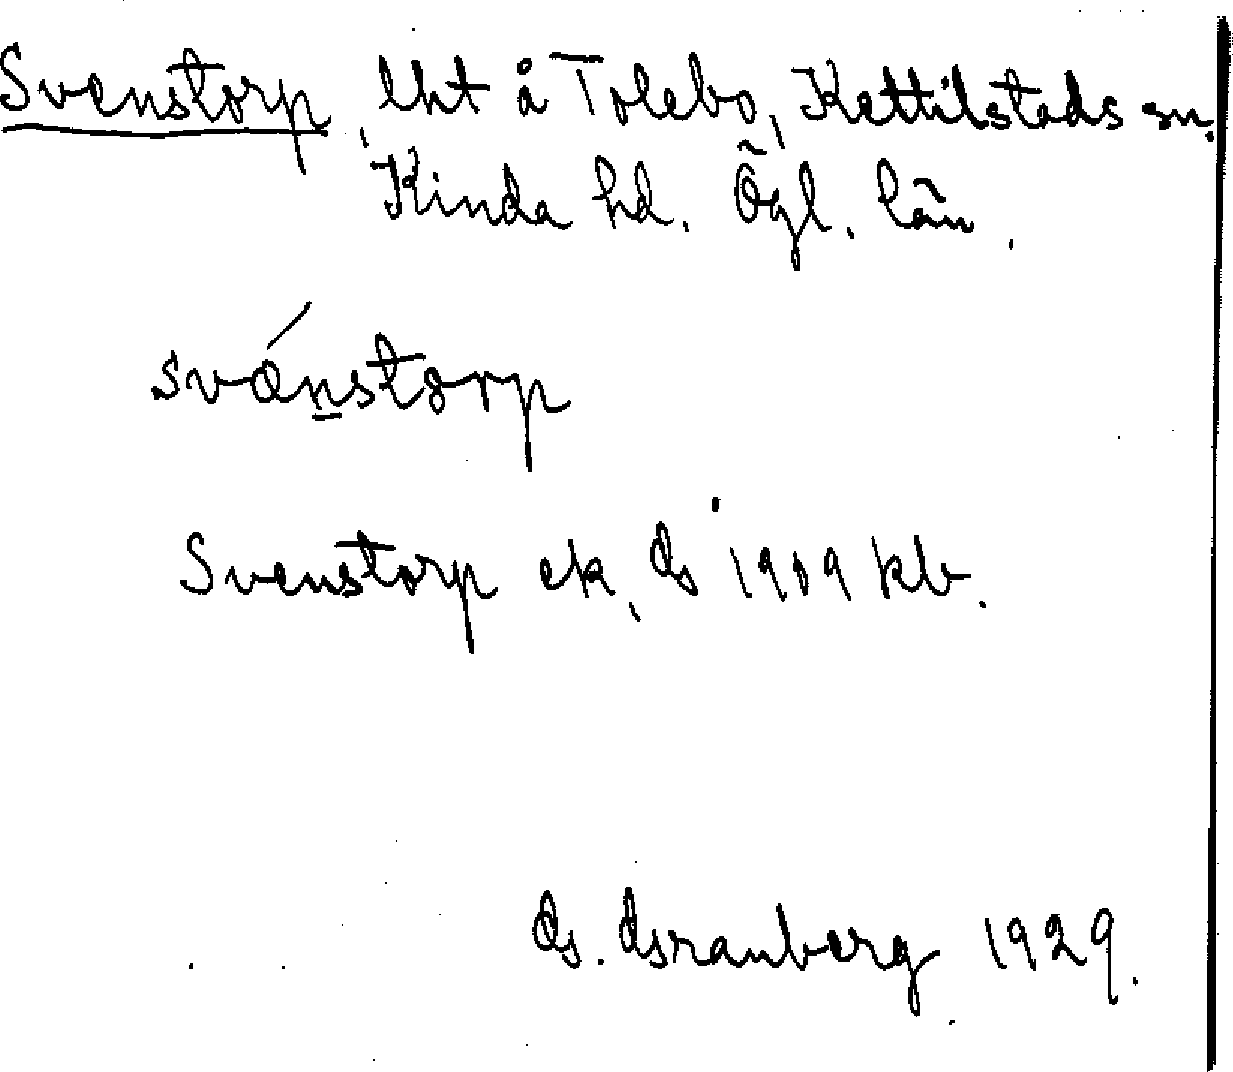 Svenstorp, lht å Tolebo, Kettilstads sn.
Kinda hd. Ögl. län.
svánstorp
Svenstorp ek, G 1909 kb.
G. Granberg 1929.